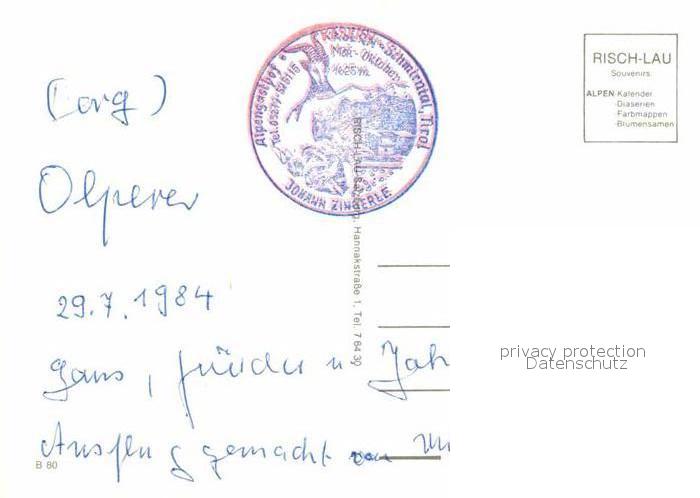 Alpengasthof KASERN - Schmirntal, Tirol
Mai - Oktober
1625 m
JOHANN ZINGERLE
RISCH-LAU
Souvenirs
ALPEN-Kalender
-Diaserien
-Farbmappen
-Blumensamen
(Berg)
Olperer
29.7.1984
Ausflug gemacht von
RISCH-LAU Salzburg, Hannakstraße 1, Tel. 7 64 39
privacy protection
Datenschutz
B 80